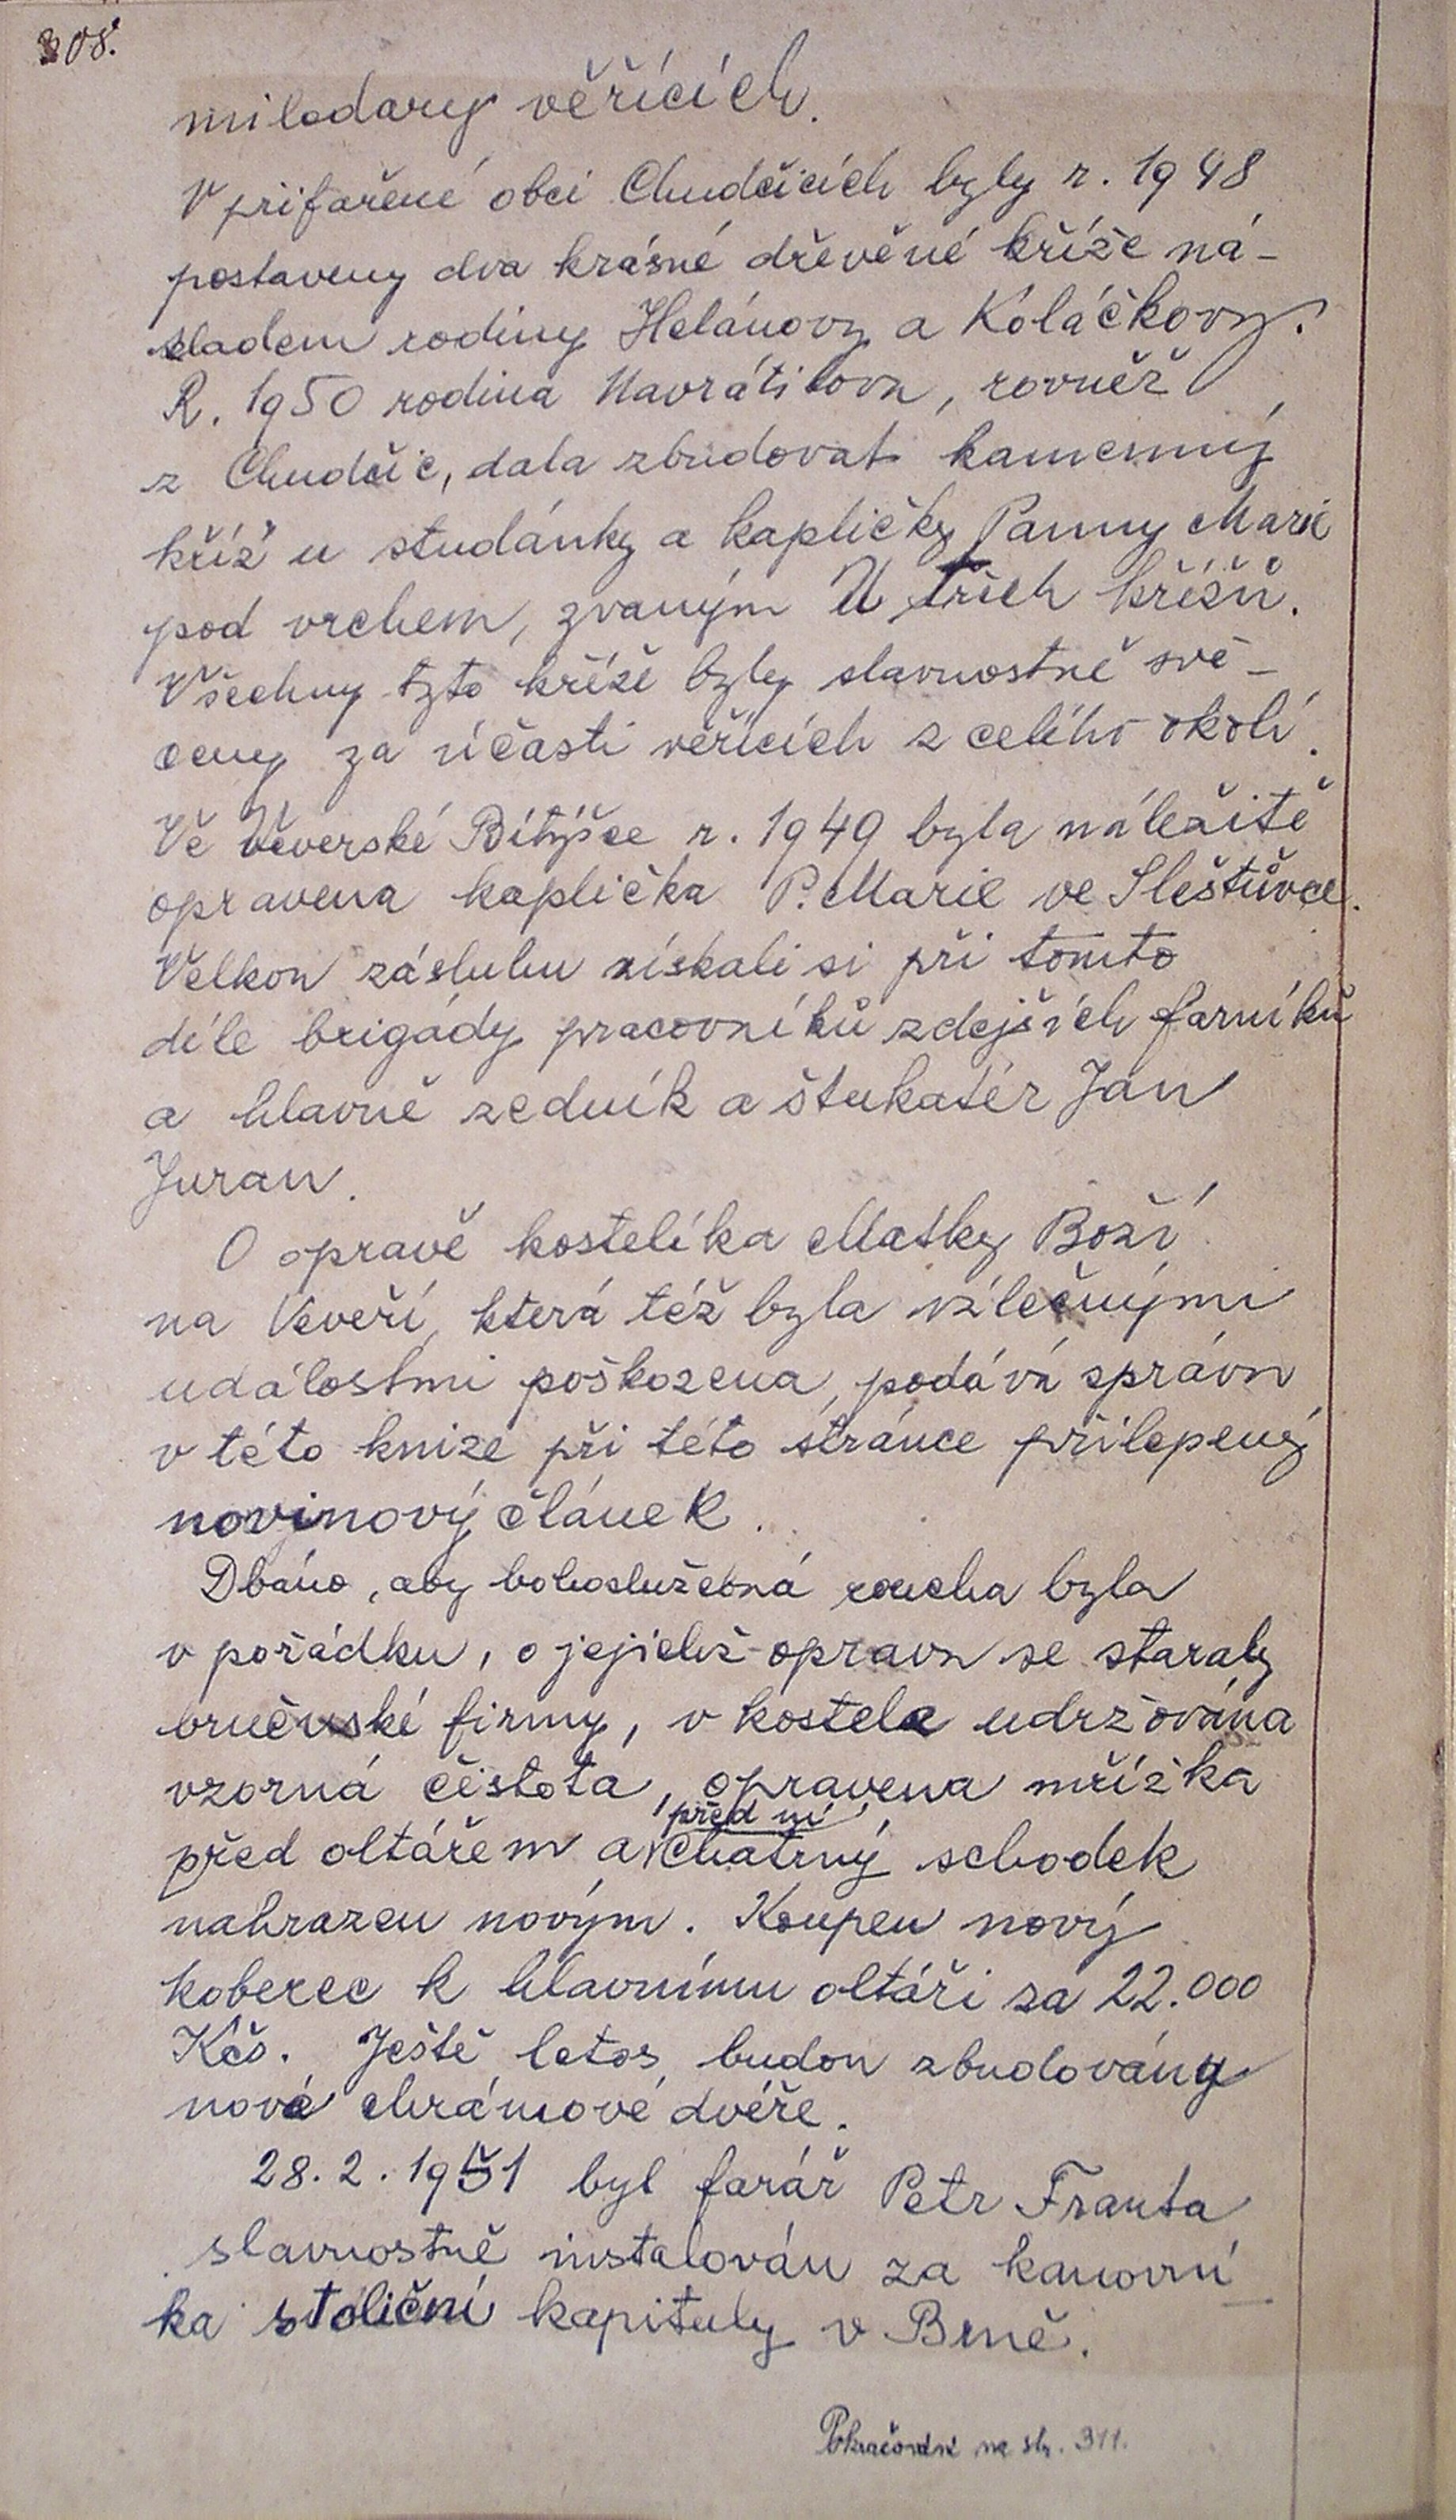 308.
milodary věřících.
V přifařené obci Chudčicích byly r. 1948
postaveny dva krásné dřevěné kříže ná-
kladem rodiny Helánovy a Koláčkovy.
R. 1950 rodina Navrátilova, rovněž
z Chudčic, dala zbudovat kamenný
kříž u studánky a kapličky Panny Marie
pod vrchem, zvaným U třích křížů.
Všechny tyto kříže byly slavnostně svě-
ceny za účasti věřících z celého okolí.
Ve Veverské Bítýšce r. 1949 byla náležitě
opravena kaplička P. Marie ve Šleštůvce.
Velkou zásluhu získali si při tomto
díle brigády pracovníků zdejších farníků
a hlavně zedník a štukatér Jan
Juran.
O opravě kostelíka Matky Boží
na Veveří, která též byla válečnými
událostmi poškozena, podává zprávu
v této knize při této stránce přilepený
novinový článek.
Dbáno, aby bohoslužebná roucha byla
v pořádku, o jejichž opravu se staraly
brněnské firmy, v kostele udržována
vzorná čistota, opravena mřížka
před ní
před oltářem a chatrný schodek
nahrazen novým. Koupen nový
koberec k hlavnímu oltáři za 22.000
Kčs. Ještě letos budou zbudovány
nové chrámové dvéře.
28. 2. 1951 byl farář Petr Franta
slavnostně instalován za kanovní
ka stoliční kapituly v Brně.
Pokračování na str. 311.